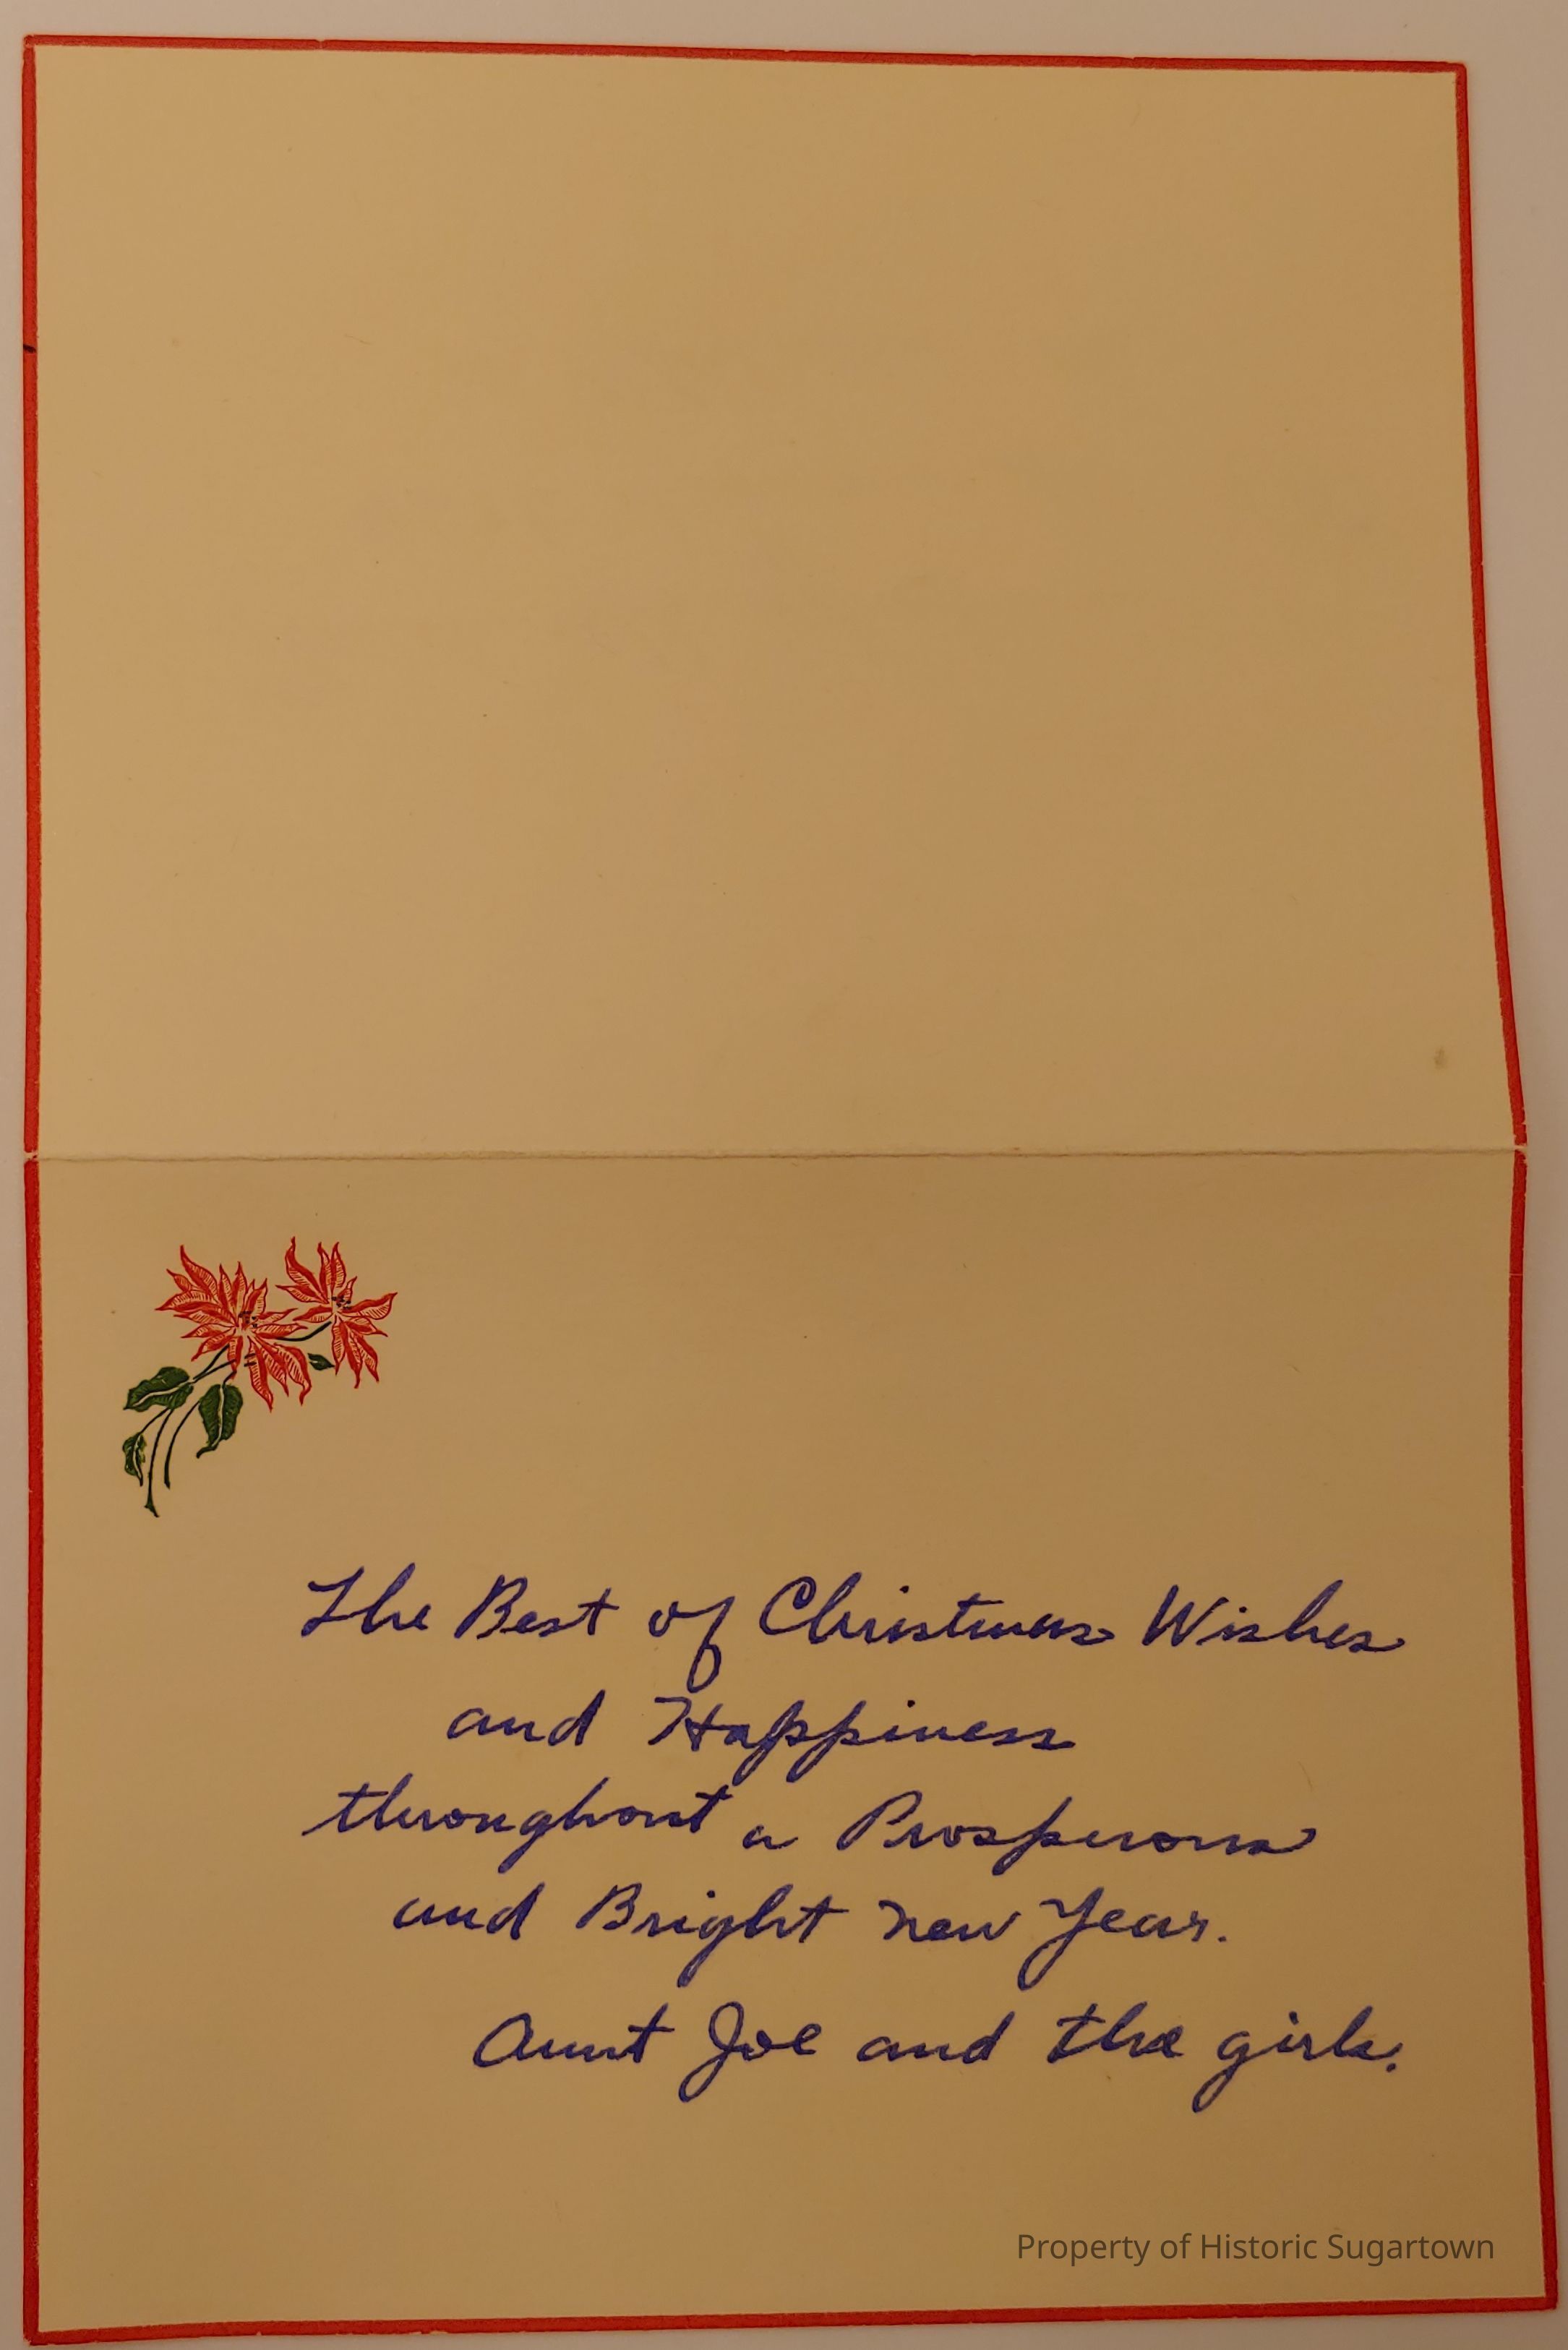 The Best of Christmas Wishes
and Happiness
throughout a Prosperous
and Bright new Year.
Aunt Joe and the girls.
Property of Historic Sugartown